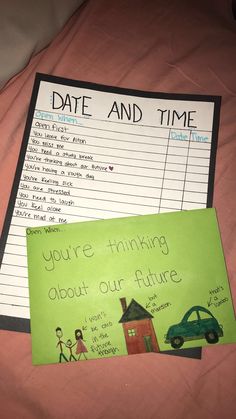 DATE AND TIME
Open When...
Date Time
Open first
You leave for Alton
You miss me
You need a study break
You're thinking about our future ♥
You're having a rough day
You're feeling sick
You are stressed
You need to laugh
You feel alone
You're mad at me
Open When...
you're thinking
about our future
I won't
be
in the
future though
but a
mansion
that's
a